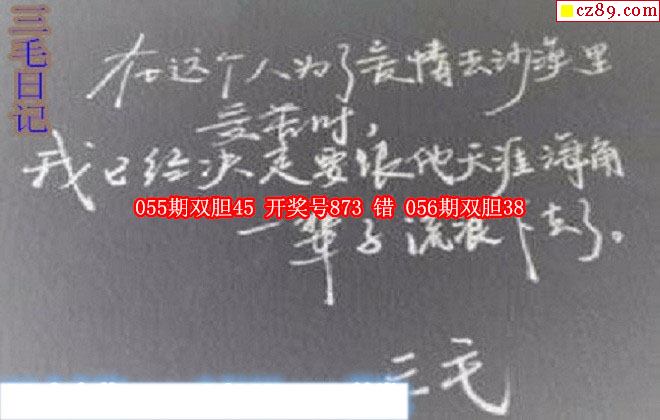 cz89.com
三毛日记
在这个人为了爱情去沙漠里
受苦时,
我已经决定要跟他天涯海角
055期双胆45 开奖号873 错 056期双胆38
一辈子流浪下去了。
三毛